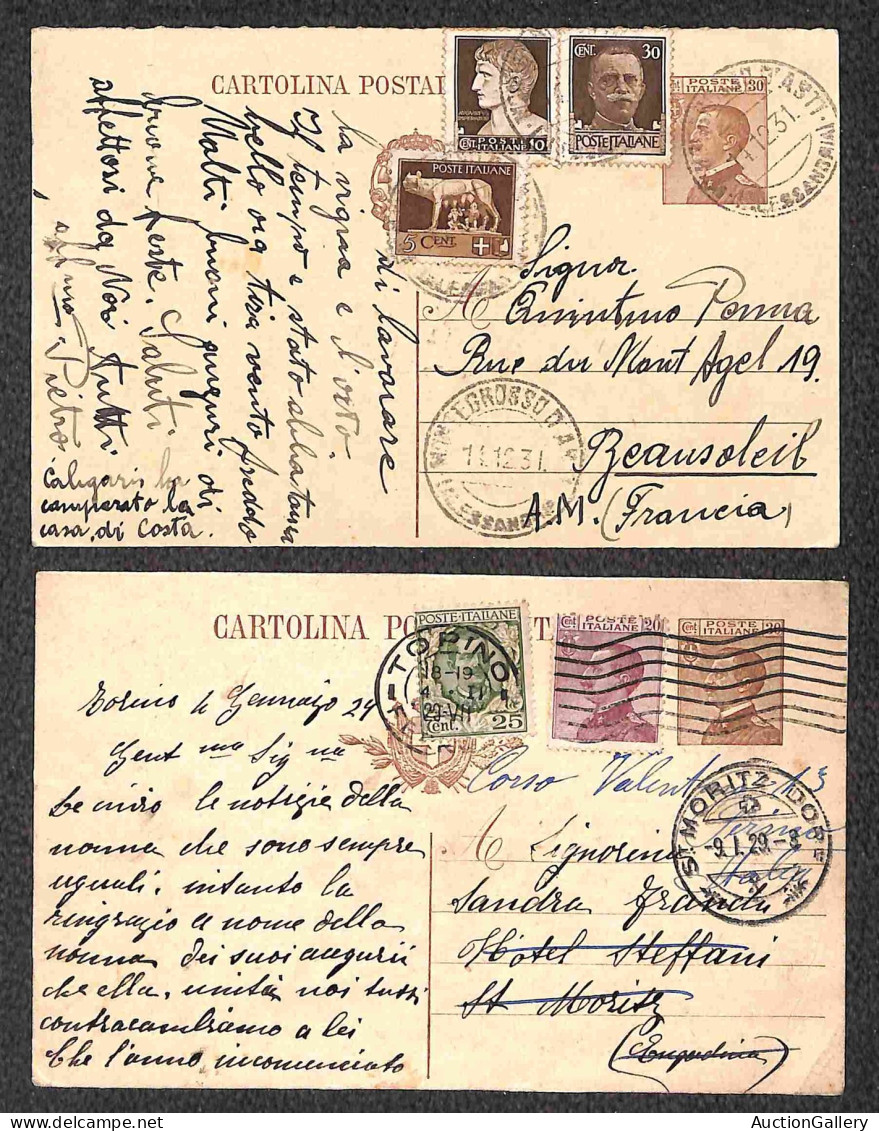 CARTOLINA POSTAL
CENT. POSTE ITALIANE 10
CENT. 30
POSTE ITALIANE
POSTE ITALIANE 30
POSTE ITALIANE
5 CENT.
di lavorare
la vigna e l'orto.
Il tempo è stato abbastanza
bello ora tira vento freddo
Molti buoni auguri di
buone feste. Saluti
affettosi da Noi tutti
Pietro
Caligaris ha
camperato la
casa di Costa.
Signor
A Quintino Penna
Rue du Mont Agel 19.
Beausoleil
A.M. (Francia)
MONTEGROSSO D'ASTI
11.12.31.
(ALESSANDRIA)
CARTOLINA PO TA
POSTE ITALIANE
Cent. 25
Cent 20
POSTE ITALIANE
Cent POSTE ITALIANE 30
TORINO
18-19
4 II
29-VII
Torino 4 Gennaio 29
Gent ma Sig na
Le invio le notizie della
nonna che sono sempre
uguali, intanto la
ringrazio a nome della
nonna dei suoi augurii
che ella, unita noi tutti
contracambiamo a lei
Che l'anno incomenciato
Corso Valent 13
Torino
Italia
ST. MORITZ DORF
-9.I.29.-8
A Signorina
Sandra
Hôtel Steffani
St Moritz
(Engadina)
AuctionGallery